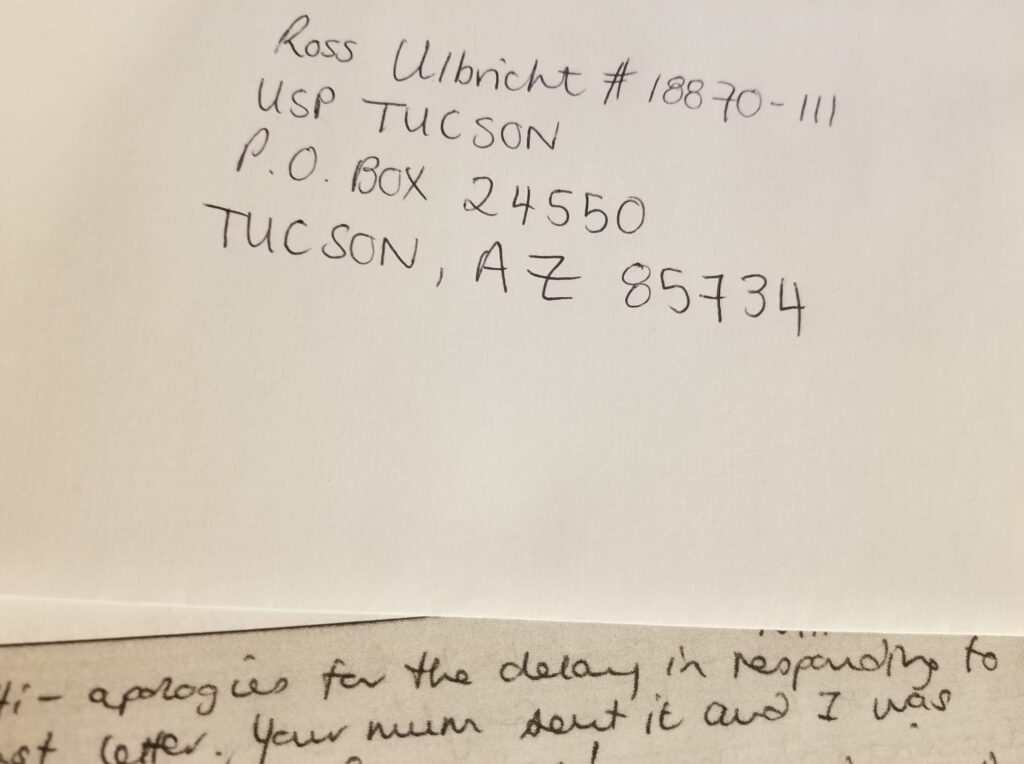 Ross Ulbricht # 18870-111
USP TUCSON
P.O. BOX 24550
TUCSON, AZ 85734
Hi - apologies for the delay in responding to
letter. Your mum sent it and I was